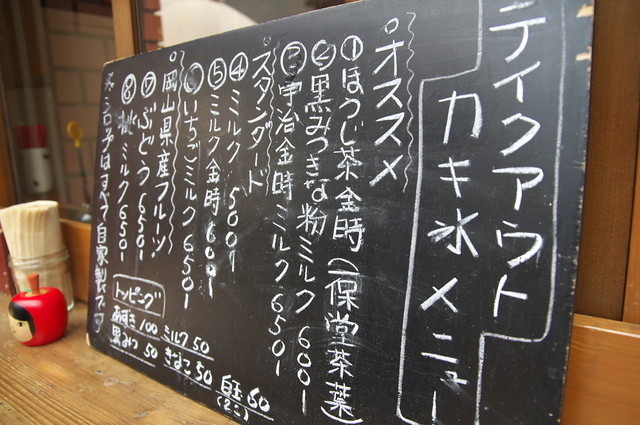 テイクアウト
カキ氷メニュー
。オススメ
①ほうじ茶金時(一保堂茶葉)
②黒みつきな粉ミルク 600-
③宇治金時ミルク 650-
。スタンダード
④ミルク 500-
⑤ミルク金時 600-
⑥いちごミルク 650-
岡山県産フルーツ
⑦ぶどう 650-
⑧桃ミルク 650-
※シロップはすべて自家製です
トッピング
あずき 100 ミルク 50
黒みつ 50 きなこ 50 白玉 50
(2こ)